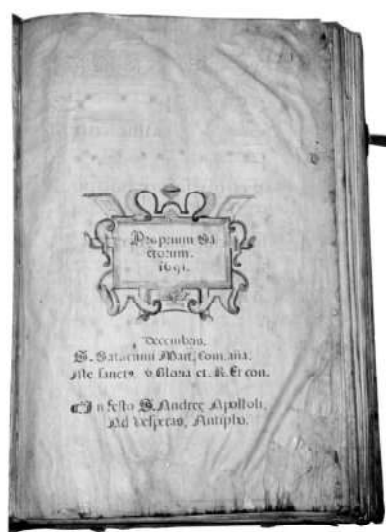 Proprium Sa-
ctorum.
1691.
Decembris.
S. Saturnini Mart. Com. ana.
Iste sanctꝰ. ℣. Gloria et. R. Et con.
In festo S. Andreę Apostoli,
Ad Vesperas, Antipho.